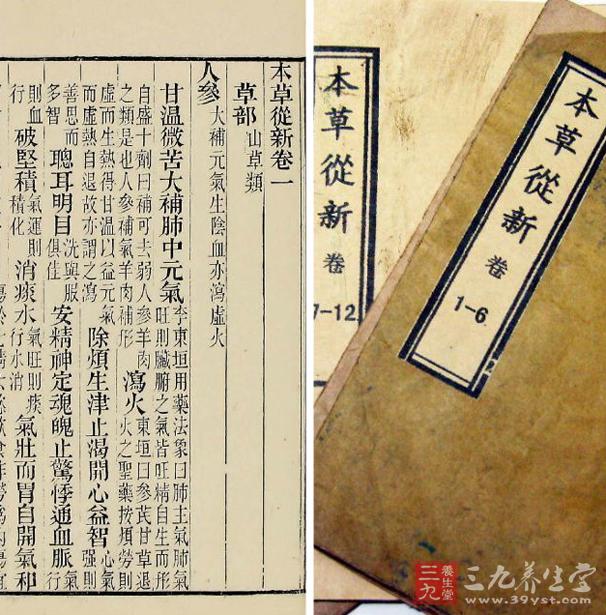 本草從新卷一
草部 山草類
人參 大補元氣生陰血亦瀉虛火
甘温微苦大補肺中元氣 李東垣用藥法象曰肺主氣肺氣
旺則臟腑之氣皆旺精自生而形
自盛十劑曰補可去弱人參羊肉
之類是也人參補氣羊肉補形
瀉火 東垣曰參芪甘草退
火之聖藥按煩勞則
虛而生熱得甘温以益元氣
而虛熱自退故亦謂之瀉
除煩生津止渴開心益智 心氣
強則
善思而
多智
聰耳明目 洗與服
俱佳
安精神定魂魄止驚悸通血脈 氣
行
則血
行
破堅積 氣運則
積化
消痰水 氣旺則痰
行水消
氣壯而胃自開氣和
本草從新 卷
7-12
本草從新 卷
1-6
2
三九
養生堂
三九养生堂
www.39yst.com